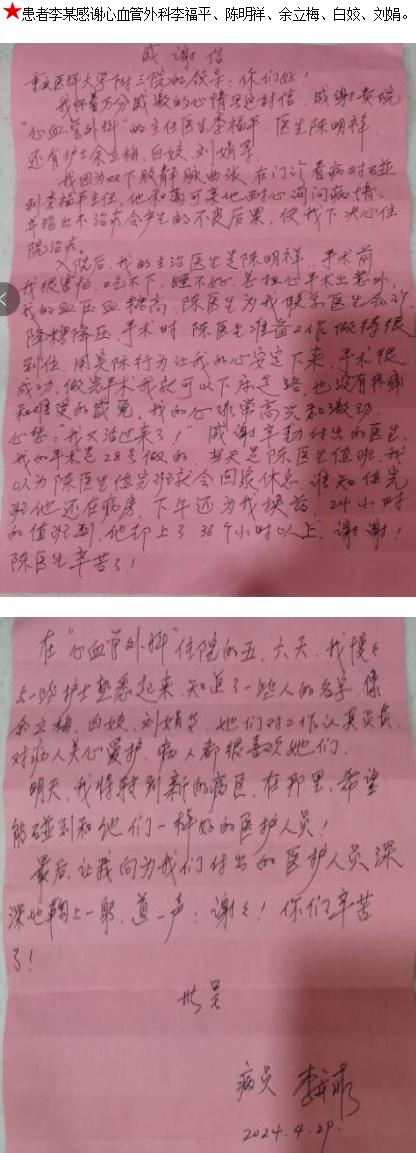 ★患者李某感谢心血管外科李福平、陈明祥、余立梅、白姣、刘娟。
感谢信
重庆医科大学附三院的领导：你们好！
我怀着万分感激的心情写这封信，感谢贵院
“心血管外科”的主任医生李福平，医生陈明祥，
还有护士余立梅，白姣，刘娟等。
我因为双下肢静脉曲张，在门诊看病时碰
到李福平主任，他和蔼可亲地耐心询问病情，
并指出不治疗会产生的不良后果，使我下决心住
院治疗。
入院后，我的主治医生是陈明祥。手术前
我很害怕，吃不下，睡不好，总担心手术出意外，
我的血压血糖高，陈医生为我联系医生会诊，
降糖降压，手术时，陈医生准备工作做得很
到位，用实际行为让我的心安定下来，手术很
成功，做完手术我就可以下床走路，也没有疼痛
和难受的感觉，我的心非常高兴和激动，
心想：“我又活过来了！”感谢辛勤付出的医生，
我的手术是28号做的，当天是陈医生值班，我
以为陈医生值完班就会回家休息，谁知值完
班他还在病房，下午还为我换药，24小时
的值班到，他却上了36个小时以上，谢谢！
陈医生辛苦了！
在“心血管外科”住院的五、六天，我慢々
与一些护士熟悉起来，知道了一些人的名字，像
余立梅，白姣，刘娟等，她们对工作认真负责，
对病人关心爱护，病人都很喜欢她们。
明天，我将转到新的病区，在那里，希望
能碰到和他们一样好的医护人员！
最后，让我向为我们付出的医护人员深
深地鞠上一躬，道一声：谢々！你们辛苦
了！
此呈
病员 李
2024.4.29.